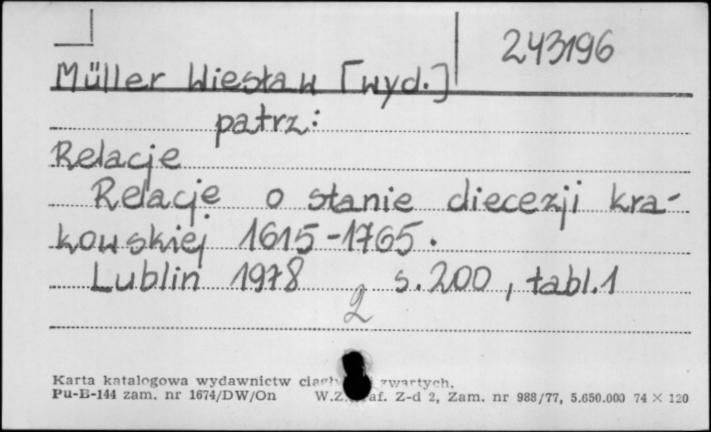 243196
Müller Wiesław [wyd.]
patrz:
Relacje
Relacje o stanie diecezji kra-
kowskiej 1615-1765.
Lublin 1978 s.200, tabl.1
2
Karta katalogowa wydawnictw zwartych.
Pu-B-144 zam. nr 1674/DW/On W.Z. Z-d 2, Zam. nr 988/77, 5.650.000 74 × 120